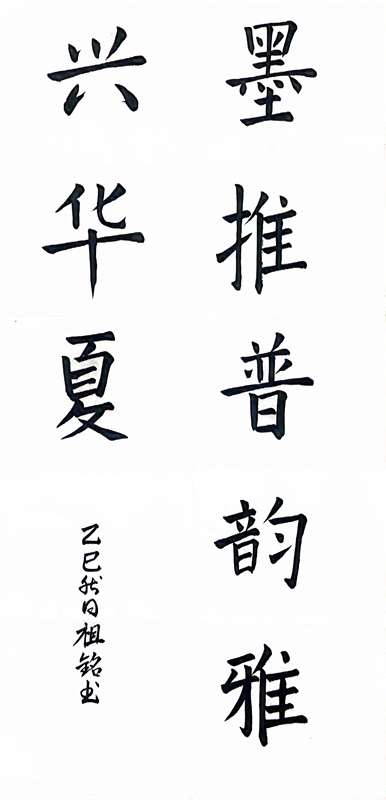 墨推普韵雅
兴华夏
乙巳秋日祖铭书